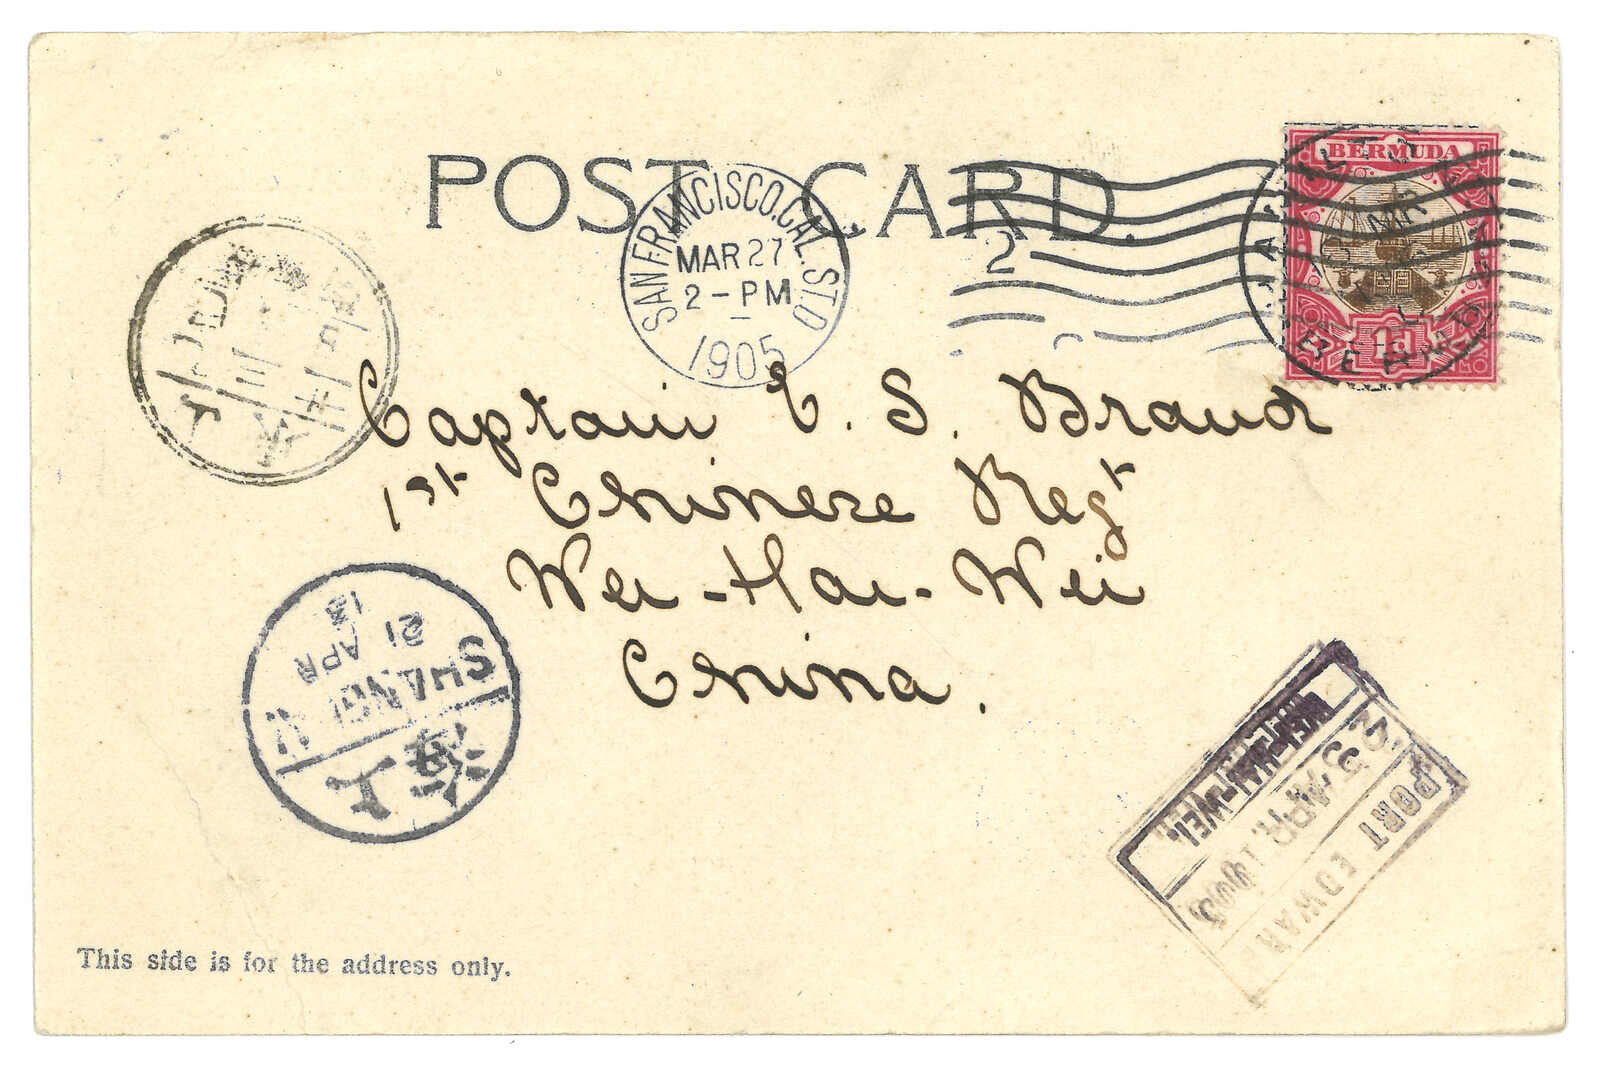 POST CARD.
SAN FRANCISCO, CAL. STA.D
MAR 27
2-PM
1905
2
BERMUDA
1d
Captain E. S. Brand
1st Chinese Regt
Wei-Hai-Wei
China.
SHANGHAI
21 APR
13
上海
PORT EDWARD
23 APR. 1905
WEI-HAI-WEI.
This side is for the address only.